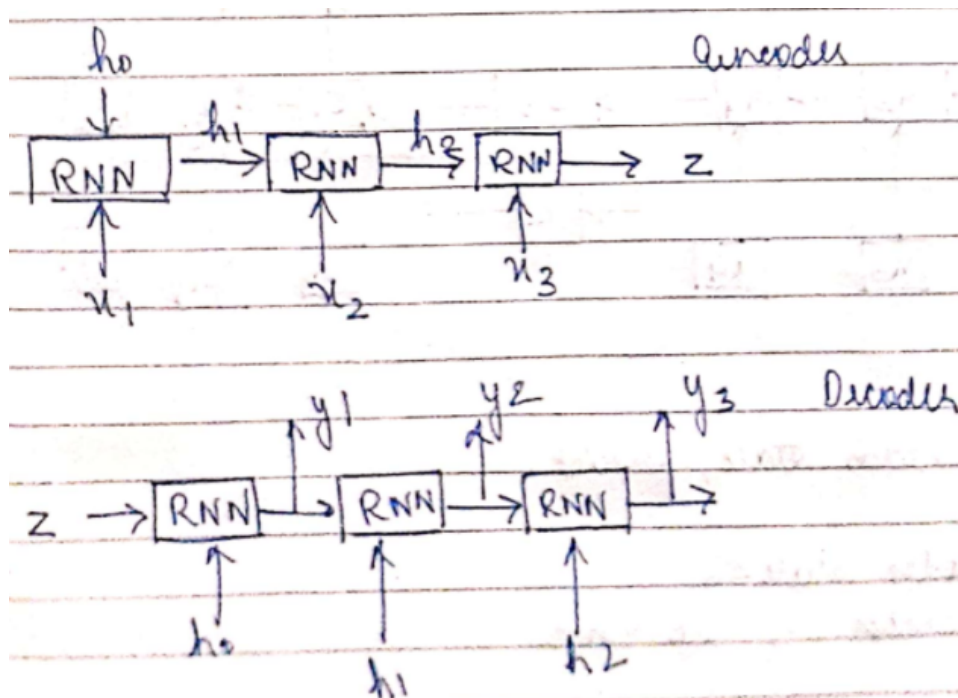 h₀ Encoder
h₁ h₂
RNN RNN RNN z
x₁ x₂ x₃
y1 y2 y3 Decoder
z RNN RNN RNN
h₀
h1 h2